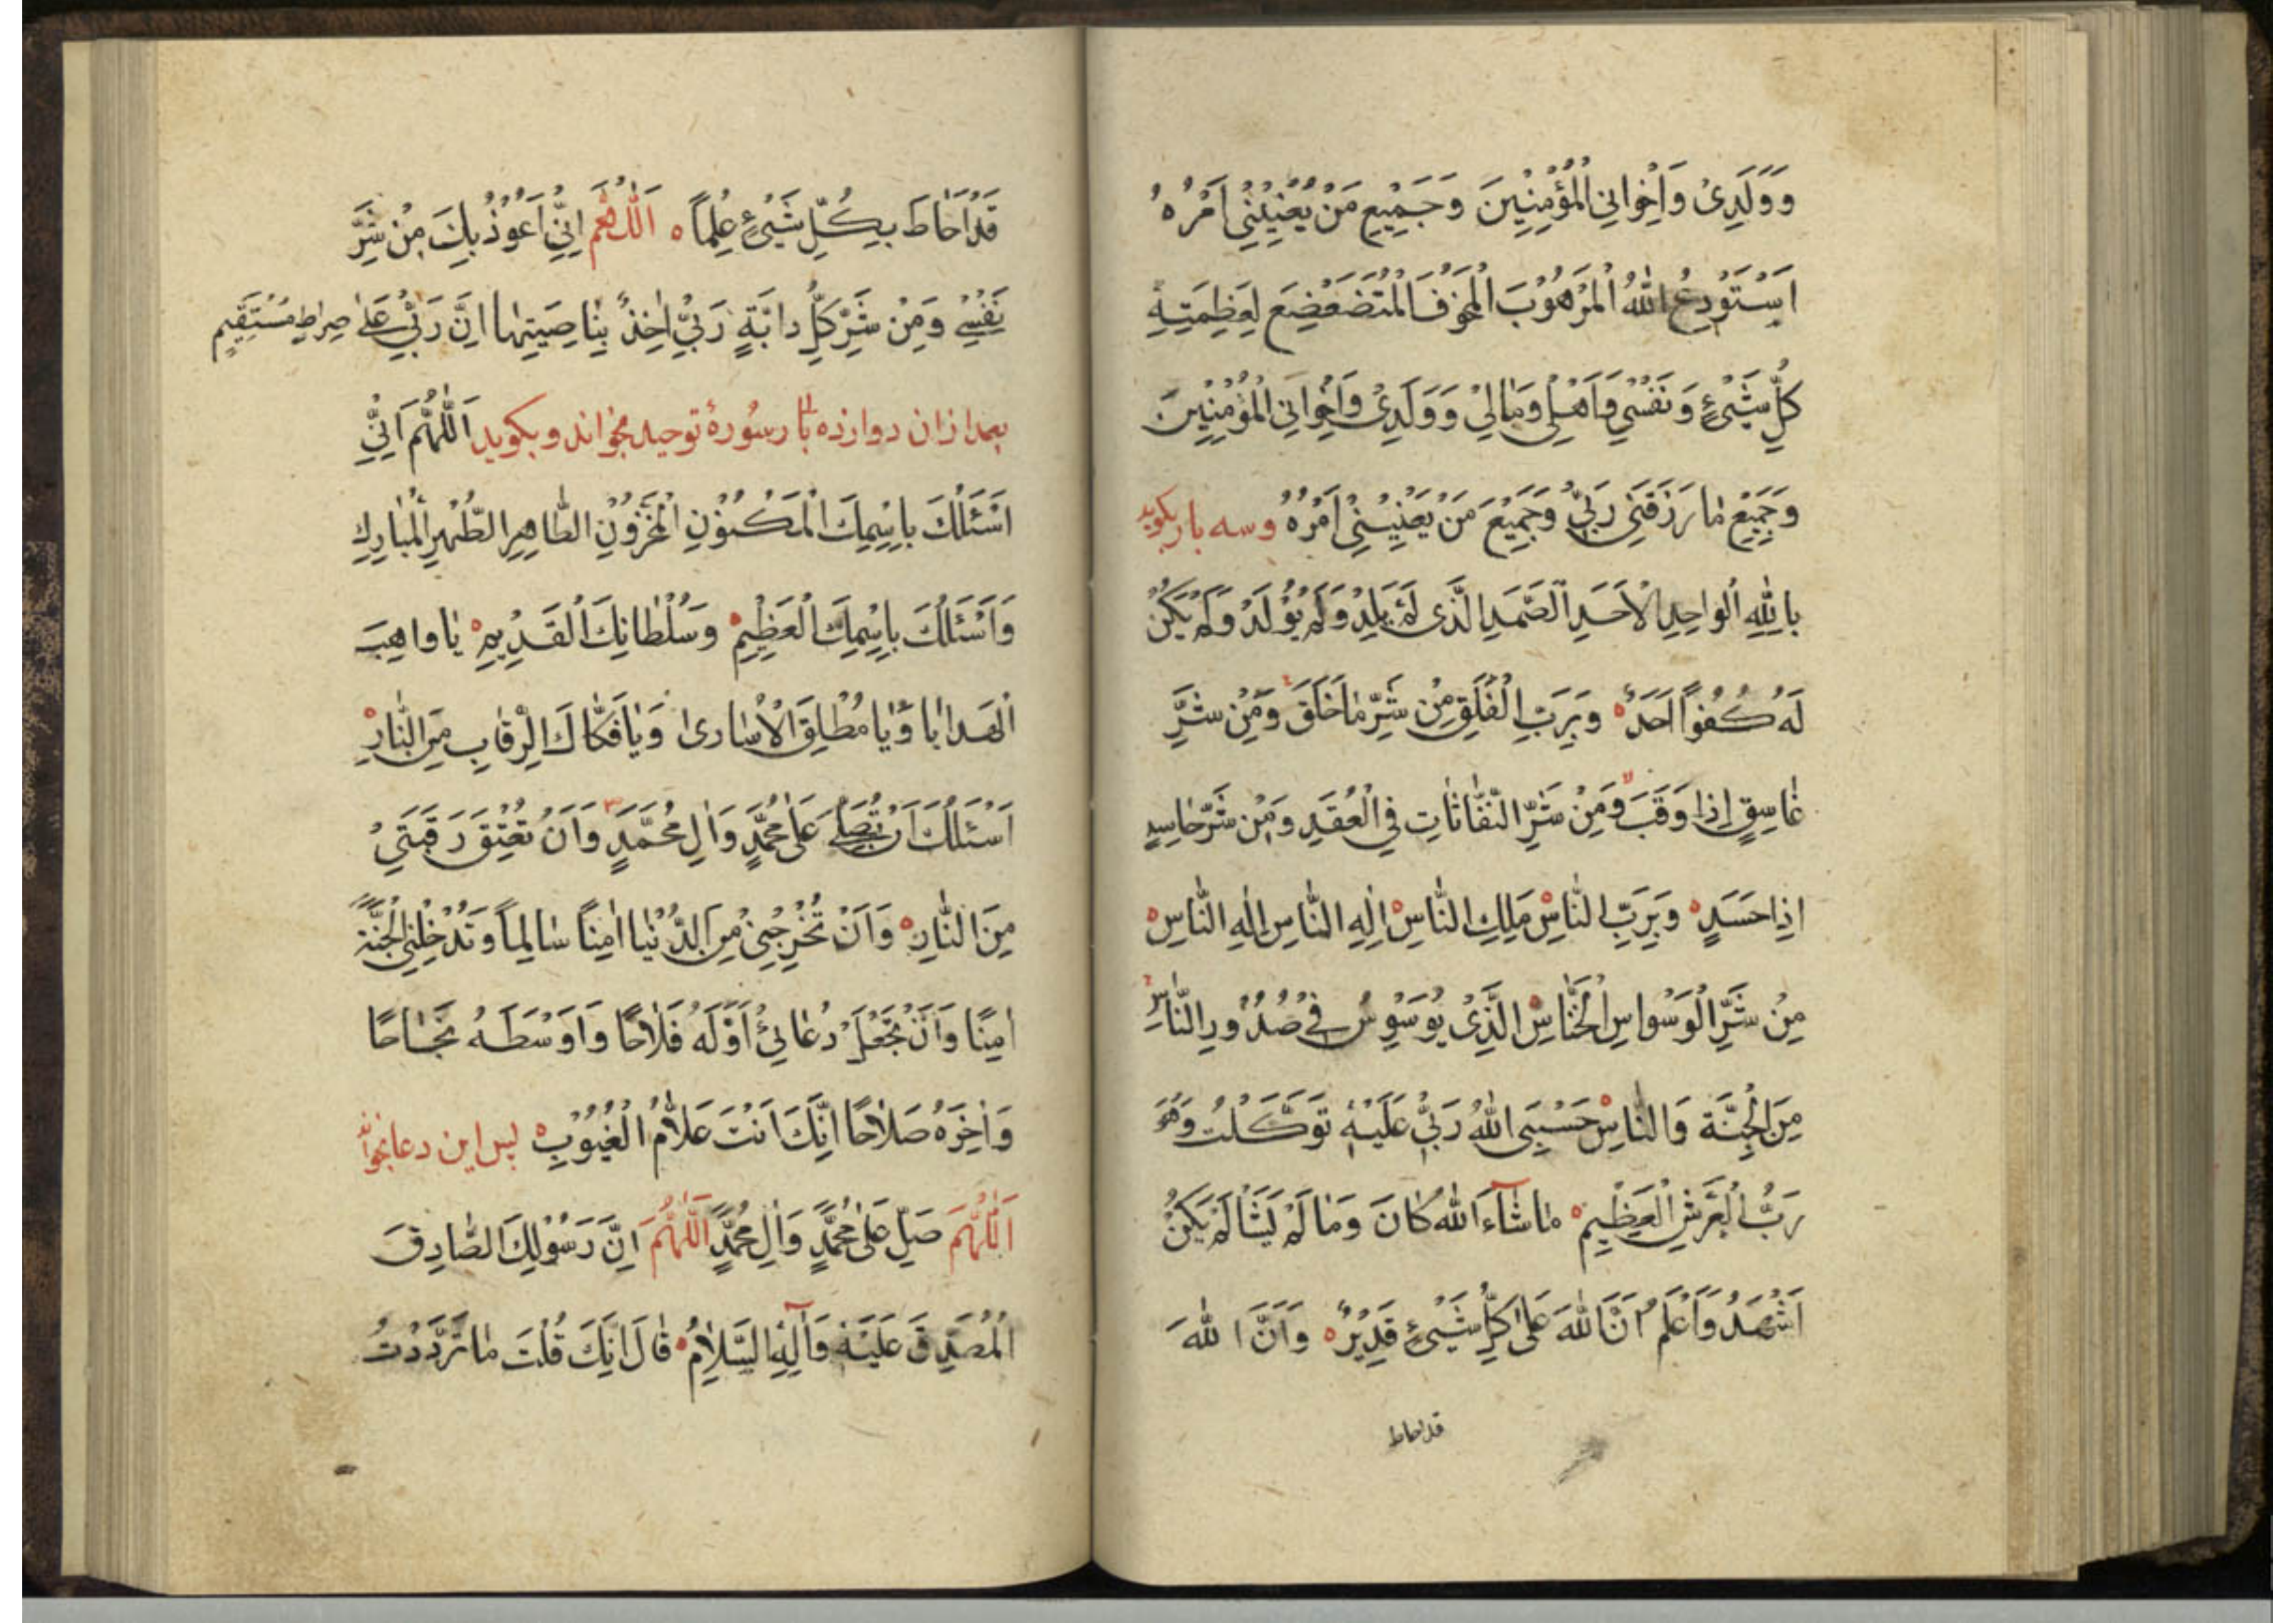 وَوَلَدِىْ وَاِخْوَانِى الْمُؤْمِنِيْنَ وَجَمِيْعِ مَنْ يَعْنِيْنِىْ اَمْرُهُ
اَسْتَوْدِعُ اللهَ الْمَرْهُوْبَ الْمَخُوْفَ الْمُتَضَعْضِعَ لِعَظَمَتِهِ
كُلُّ شَىْءٍ وَنَفْسِىْ وَاَهْلِىْ وَمٰالِىْ وَوَلَدِىْ وَاِخْوَانِى الْمُؤْمِنِيْنَ
وَجَمِيْعَ مٰا رَزَقَنِىْ رَبِّىْ وَجَمِيْعَ مَنْ يَعْنِيْنِىْ اَمْرُهُ وسه بار بكويد
بِاللهِ الْوٰاحِدِ الْاَحَدِ الصَّمَدِ الَّذِى لَمْ يَلِدْ وَلَمْ يُوْلَدْ وَلَمْ يَكُنْ
لَهُ كُفُوًا اَحَدٌ وَبِرَبِّ الْفَلَقِ مِنْ شَرِّ مٰا خَلَقَ وَمِنْ شَرِّ
غٰاسِقٍ اِذٰا وَقَبَ وَمِنْ شَرِّ النَّفّٰاثٰاتِ فِى الْعُقَدِ وَمِنْ شَرِّ حٰاسِدٍ
اِذٰا حَسَدَ وَبِرَبِّ النّٰاسِ مَلِكِ النّٰاسِ اِلٰهِ النّٰاسِ اِلٰهِ النّٰاسِ
مِنْ شَرِّ الْوَسْوٰاسِ الْخَنّٰاسِ الَّذِىْ يُوَسْوِسُ فِىْ صُدُوْرِ النّٰاسِ
مِنَ الْجِنَّةِ وَالنّٰاسِ حَسْبِىَ اللهُ رَبِّىْ عَلَيْهِ تَوَكَّلْتُ وَهُوَ
رَبُّ الْعَرْشِ الْعَظِيْمِ مٰا شٰآءَ اللهُ كٰانَ وَمٰا لَمْ يَشَأْ لَمْ يَكُنْ
اَشْهَدُ وَاَعْلَمُ اَنَّ اللهَ عَلىٰ كُلِّ شَىْءٍ قَدِيْرٌ وَاَنَّ اللهَ
قد احاط
قَدْ اَحٰاطَ بِكُلِّ شَىْءٍ عِلْمًا اَللّٰهُمَّ اِنِّىْ اَعُوْذُ بِكَ مِنْ شَرِّ
نَفْسِىْ وَمِنْ شَرِّ كُلِّ دٰابَّةٍ رَبِّىْ اٰخِذٌ بِنٰاصِيَتِهٰا اِنَّ رَبِّىْ عَلىٰ صِرٰاطٍ مُسْتَقِيْمٍ
بعد ازان دوازده بار سورۀ توحيد بخواند وبكويد اَللّٰهُمَّ اِنِّىْ
اَسْئَلُكَ بِاسْمِكَ الْمَكْنُوْنِ الْمَخْزُوْنِ الطّٰاهِرِ الطُّهْرِ الْمُبٰارَكِ
وَاَسْئَلُكَ بِاسْمِكَ الْعَظِيْمِ وَسُلْطٰانِكَ الْقَدِيْمِ يٰا وٰاهِبَ
الْعَطٰايٰا وَيٰا مُطْلِقَ الْاُسٰارىٰ وَيٰا فَكّٰاكَ الرِّقٰابِ مِنَ النّٰارِ
اَسْئَلُكَ اَنْ تُصَلِّىَ عَلىٰ مُحَمَّدٍ وَاٰلِ مُحَمَّدٍ وَاَنْ تُعْتِقَ رَقَبَتِىْ
مِنَ النّٰارِ وَاَنْ تُخْرِجَنِىْ مِنَ الدُّنْيٰا اٰمِنًا سٰالِمًا وَتُدْخِلَنِى الْجَنَّةَ
اٰمِنًا وَاَنْ تَجْعَلَ دُعٰائِىْ اَوَّلَهُ فَلٰاحًا وَاَوْسَطَهُ نَجٰاحًا
وَاٰخِرَهُ صَلٰاحًا اِنَّكَ اَنْتَ عَلّٰامُ الْغُيُوْبِ پس اين دعا بخواند
اَللّٰهُمَّ صَلِّ عَلىٰ مُحَمَّدٍ وَاٰلِ مُحَمَّدٍ اَللّٰهُمَّ اِنَّ رَسُوْلَكَ الصّٰادِقَ
الْمُصَدِّقَ عَلَيْهِ وَاٰلِهِ السَّلٰامُ قٰالَ اِنَّكَ قُلْتَ مٰا تَرَدَّدْتُ